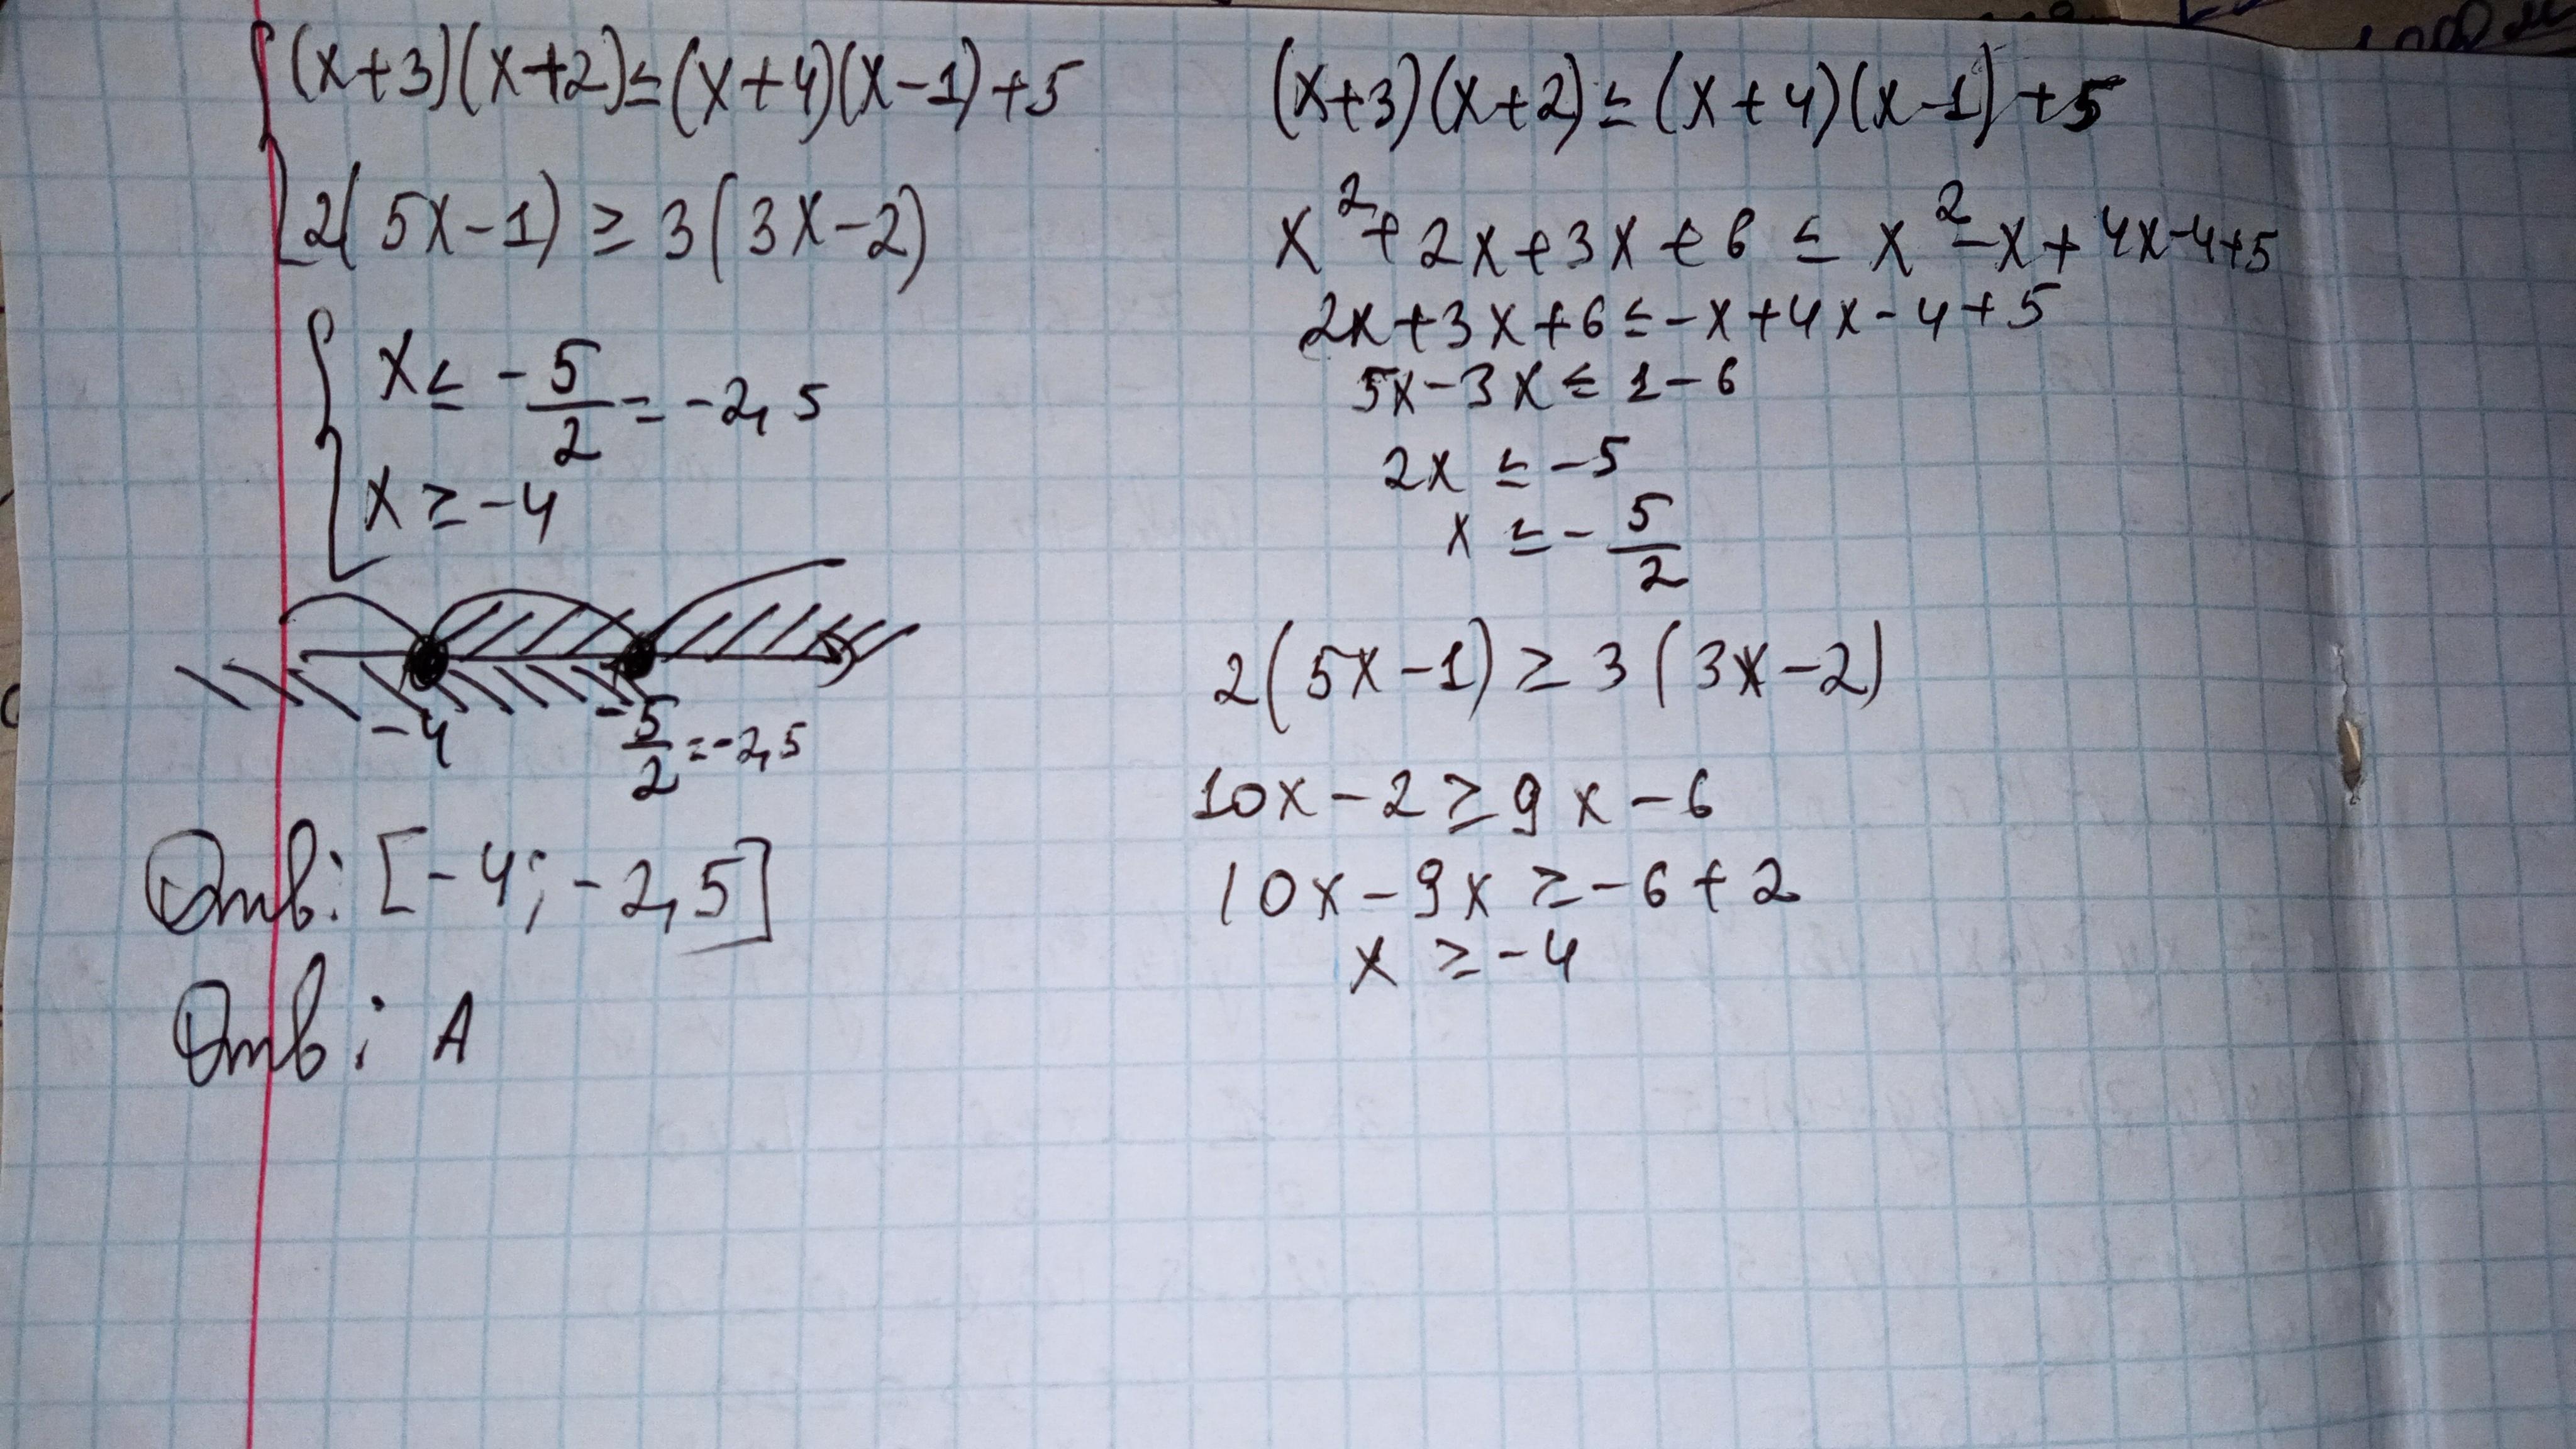 (x+3)(x+2)≤(x+4)(x-1)+5
2(5x-1)≥3(3x-2)
x≤-5/2=-2,5
x≥-4
-4
-5/2=-2,5
Отв: [-4; -2,5]
Отв: А
(x+3)(x+2)≤(x+4)(x-1)+5
x²+2x+3x+6≤x²-x+4x-4+5
2x+3x+6≤-x+4x-4+5
5x-3x≤1-6
2x≤-5
x≤-5/2
2(5x-1)≥3(3x-2)
10x-2≥9x-6
10x-9x≥-6+2
x≥-4